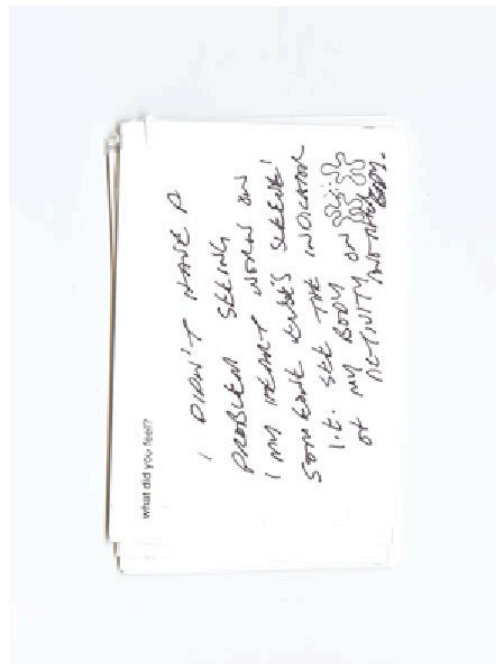 what did you feel?
I DIDN'T HAVE A
PROBLEM SEEING
MY HEART WORN ON
SOMEONE ELSE'S SLEEVE!
I.E. SEE THE INDICATOR
OF MY BODY ON
ACTIVITY ANOTHER BODY.